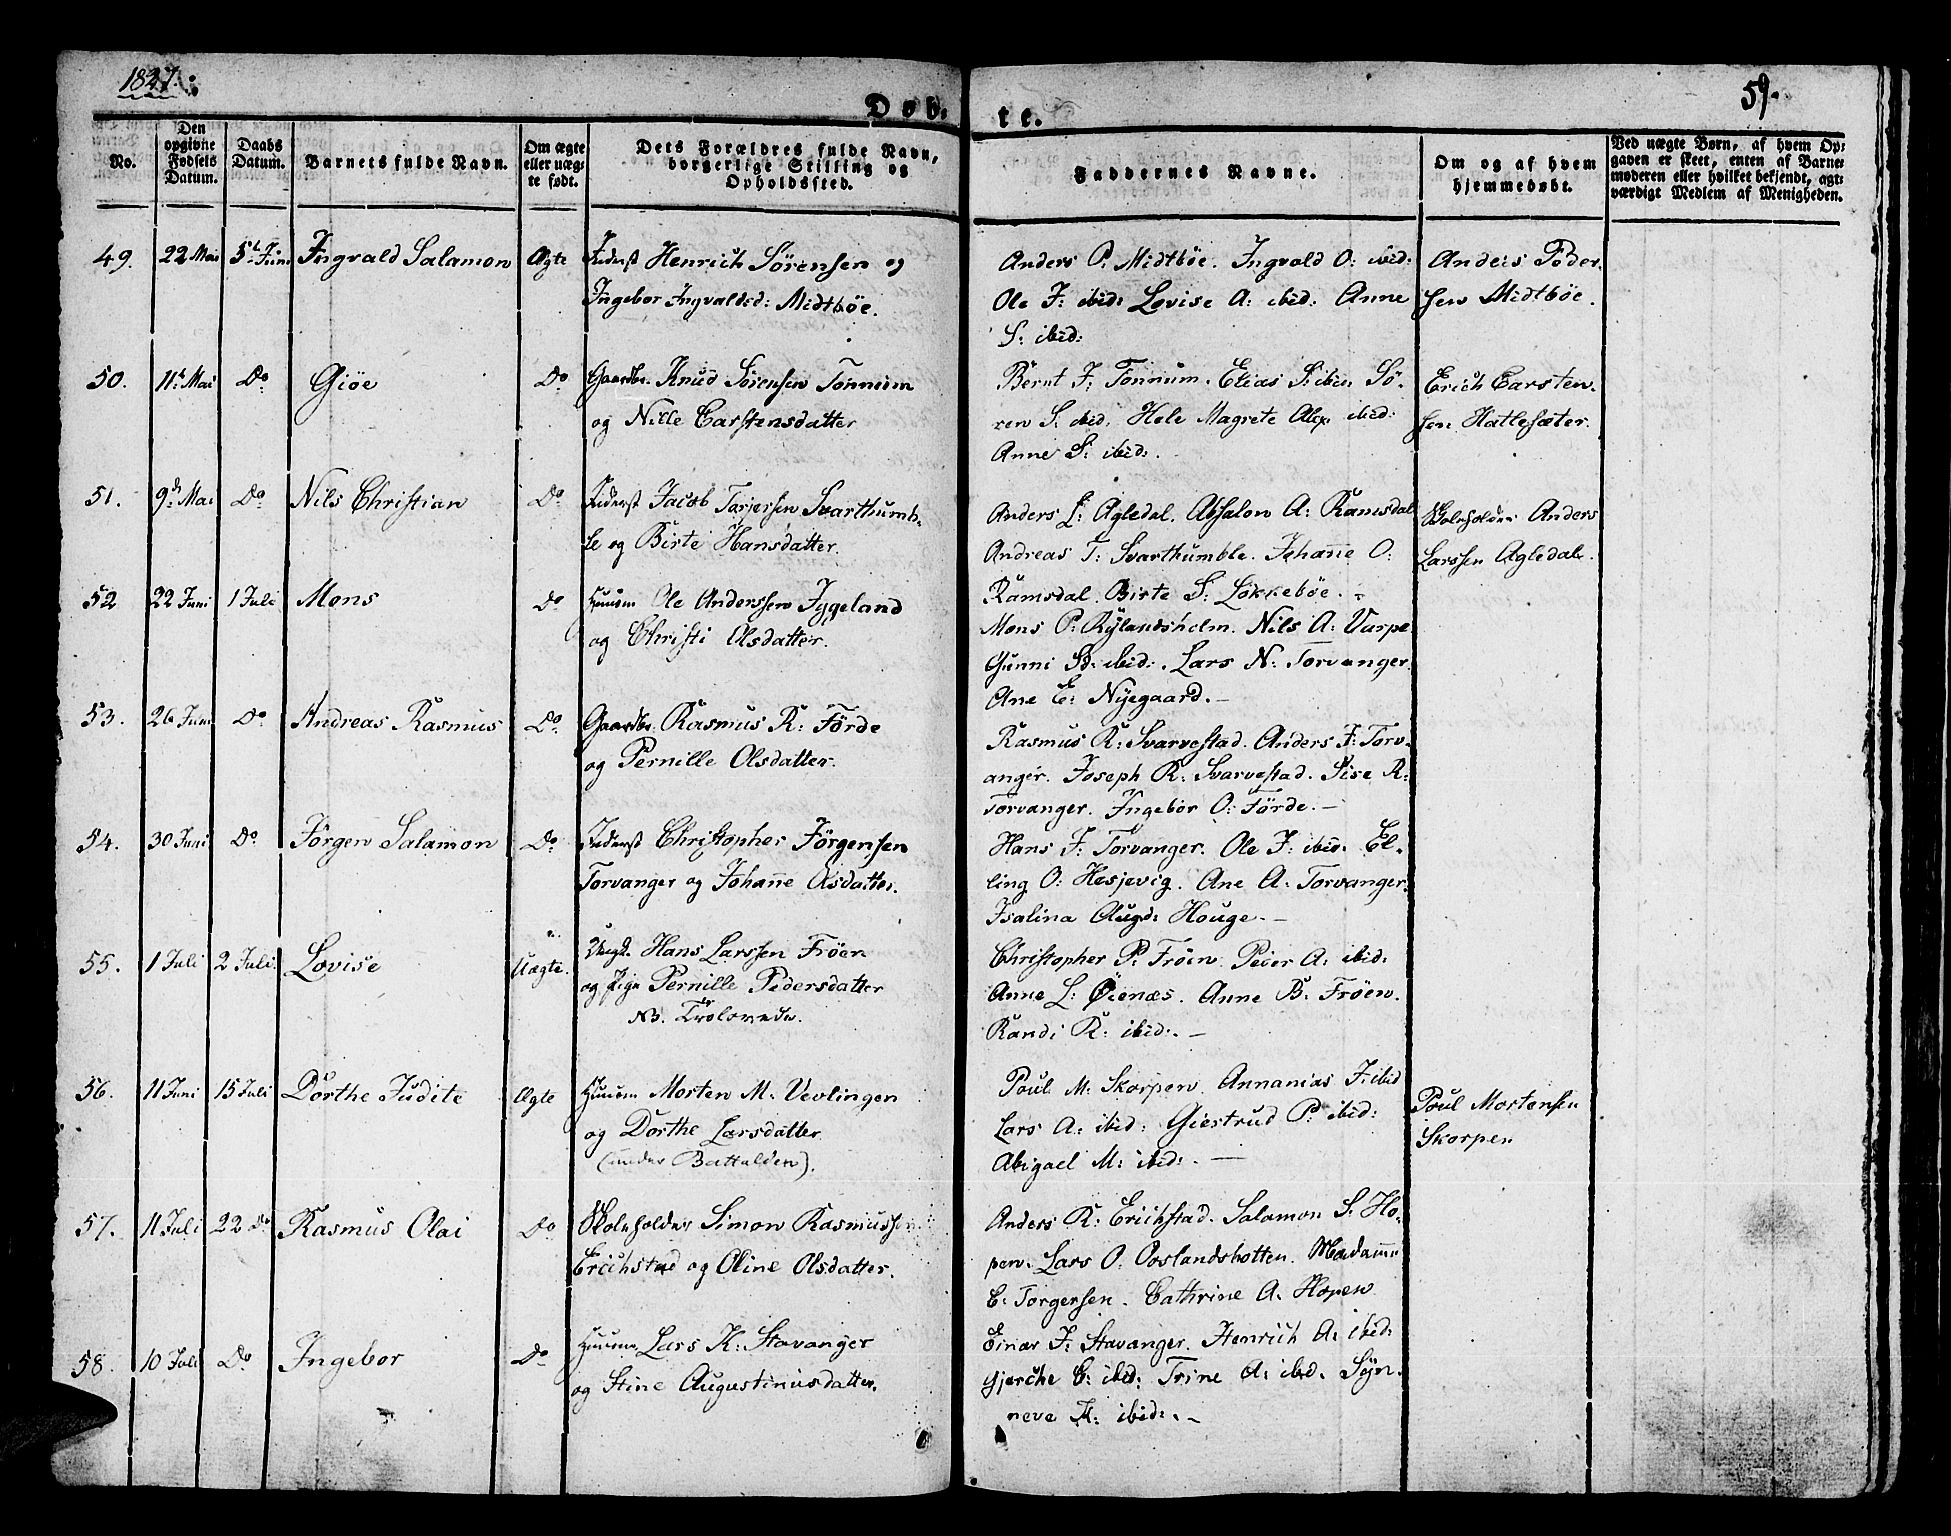 1827.
59.
Døb- te.
No.
Den opgivne Fødsels Datum.
Daabs Datum.
Barnets fulde Navn.
Om ægte eller uægte født.
Dets Forældres fulde Navn, borgerlige Stilling og Opholdssted.
Faddernes Navne.
Om og af hvem hjemmedøbt.
Ved uægte Børn, af hvem Opgaven er skeet, enten af Barnemoderen eller hvilket bekjendt, agtværdigt Medlem af Menigheden.
49. 22 Mai 5t Juni Ingvald Salamon Ægte Inderst Henrich Sörensen og
Ingebor Ingvaldsd: Midtböe.
Anders P: Midtböe. Ingvald O: ibid:
Ole J: ibid: Lovise A: ibid: Anne
S: ibid:
Anders Peder-
sen Midtböe.
50. 11t Mai Do Giöe Do Gaardbr. Knud Sörensen Tonnum
og Nille Carstensdatter
Bernt J: Tonnum. Elias S: ibid: Sö-
ren S. ibid. Hele Magrete Alex. ibid:
Anne S: ibid:.
Erich Carsten-
sen Hatlesæter.
51. 9d Mai Do Nils Christian Do Inderst Jacob Torjersen Svarthumb-
le og Birte Hansdatter.
Anders L: Agledal. Absalon A: Ramsdal
Andreas T: Svarthumble. Johanne O:
Ramsdal. Birte S: Lökkeböe. -
Skoleholder Anders
Larssen Agledal.
52 22 Juni 1 Juli Mons Do Huusm Ole Anderssen Tygeland
og Christi Olsdatter.
Mons P: Rylandsholm. Nils A: Varpe
Gunni Sd: ibid:. Lars N: Torvanger.
Ane E: Nyegaard. -
53. 26 Juni Do Andreas Rasmus Do Gaardbr. Rasmus R: Förde
og Pernille Olsdatter.
Rasmus R: Svarvestad. Anders J: Torv-
anger. Joseph R: Svarvestad. Sise R:
Torvanger. Ingebor O: Förde. -
54. 30 Juni Do Jörgen Salamon Do Inderst Christopher Jörgensen
Torvanger og Johanne Olsdatter.
Hans J: Torvanger. Ole J: ibid: El-
ling O: Hesjevig. Ane A: Torvanger.
Isalina Augd: Houge. -
55. 1 Juli 2 Juli Lovise Uægte. Ungk. Hans Larssen Fröen
og Pige Pernille Pedersdatter
NB. Trolovede.
Christopher P: Fröen. Peder A: ibid:
Anne L: Öienæs. Anne B: Fröen.
Randi R: ibid:. -
56. 11 Juni 15 Juli Dorthe Judite Ægte Huusm Morten M: Vevlingen
og Dorthe Larsdatter
(under Battalden).
Poul M: Skorpen. Annanias J: ibid
Lars A: ibid: Giertrud P: ibid:
Abigael M: ibid:. -
Poul Mortensen
Skorpen
57. 11 Juli 22 Do Rasmus Olai Do Skoleholder Simon Rasmussen
Erichstad og Oline Olsdatter.
Anders R: Erichstad. Salamon S: Ho-
pen. Lars O: Oslandsbotten. Madamme
E: Torgersen. Cathrine A: Hopen
58. 10 Juli Do Ingebor Do Huusm Lars K: Stavanger
og Stine Augustinusdatter.
Einar J: Stavanger. Henrich A: ibid:
Gjerche E: ibid: Trine A: ibid. Syn-
neve K: ibid:. -